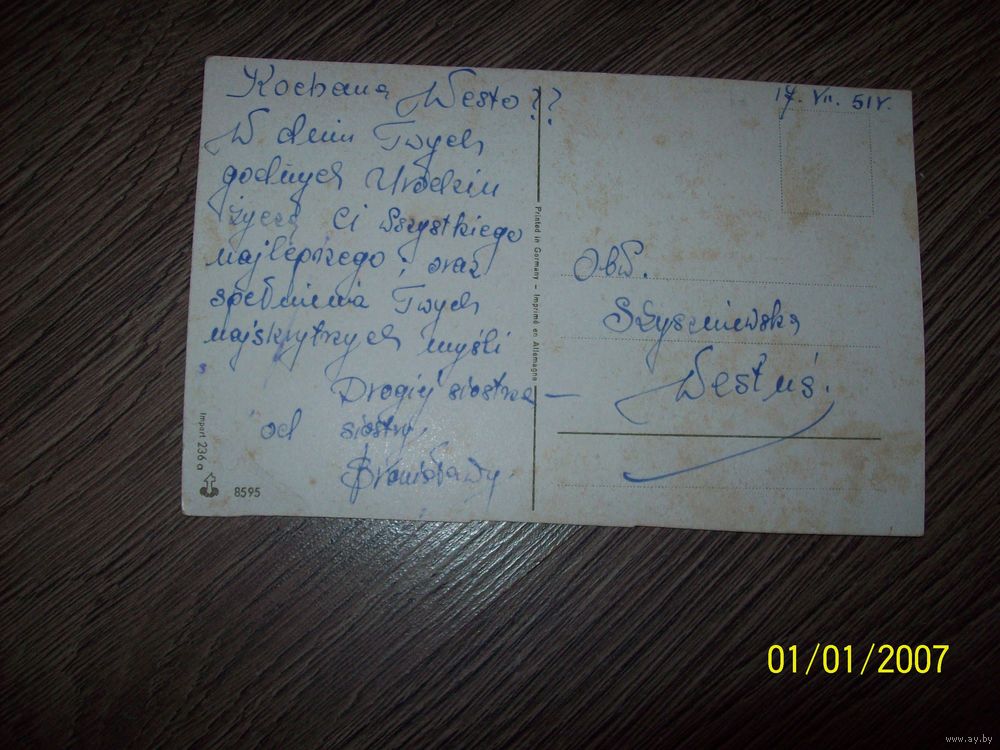 Kochana Westo??
W dniu Twych
godnych Urodzin
życzę Ci Wszystkiego
najlepszego i oraz
spełnienia Twych
najskrytrzych myśli
Drogiej siostrze —
od siostry.
Bronisławy.
17. VII. 51r.
Obw.
Westuś.
Printed in Germany – Imprimé en Allemagne
Import 236 a
8595
01/01/2007
www.ay.by